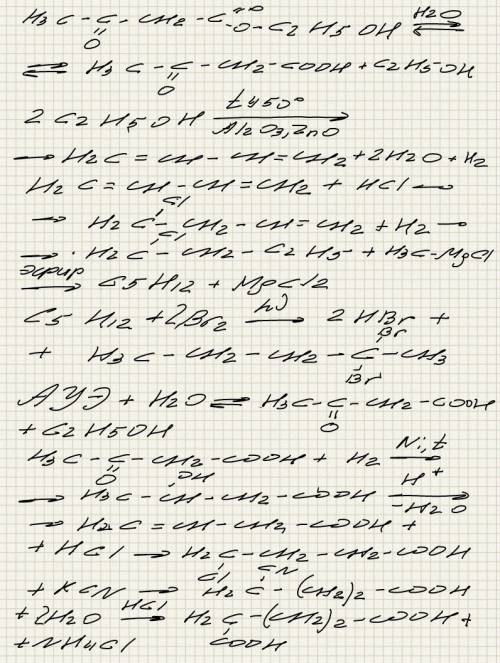 H3C - C - CH2 - C =O -O-C2H5 OH H2O ⇌
O
⇌ H3C - C - CH2 - COOH + C2H5OH
O
2 C2H5OH t 450° Al2O3, ZnO →
→ H2C = CH - CH = CH2 + 2H2O + H2
H2C = CH - CH = CH2 + HCl →
Cl
→ H2C - CH2 - CH = CH2 + H2 →
Cl
→ H2C - CH2 - C2H5 + H3C-MgCl
эфир → C5H12 + MgCl2
C5H12 + 2Br2 hν → 2 HBr +
Br
+ H3C - CH2 - CH2 - C - CH3
Br
АУЭ + H2O ⇌ H3C - C - CH2 - COOH
O
+ C2H5OH
H3C - C - CH2 - COOH + H2 Ni, t →
O
OH
→ H3C - CH - CH2 - COOH H+ -H2O →
→ H2C = CH - CH2 - COOH +
+ HCl → H2C - CH2 - CH2 - COOH
Cl CN
+ KCN → H2C - (CH2)2 - COOH
+ 2H2O HCl → H2C - (CH2)2 - COOH +
+ NH4Cl COOH